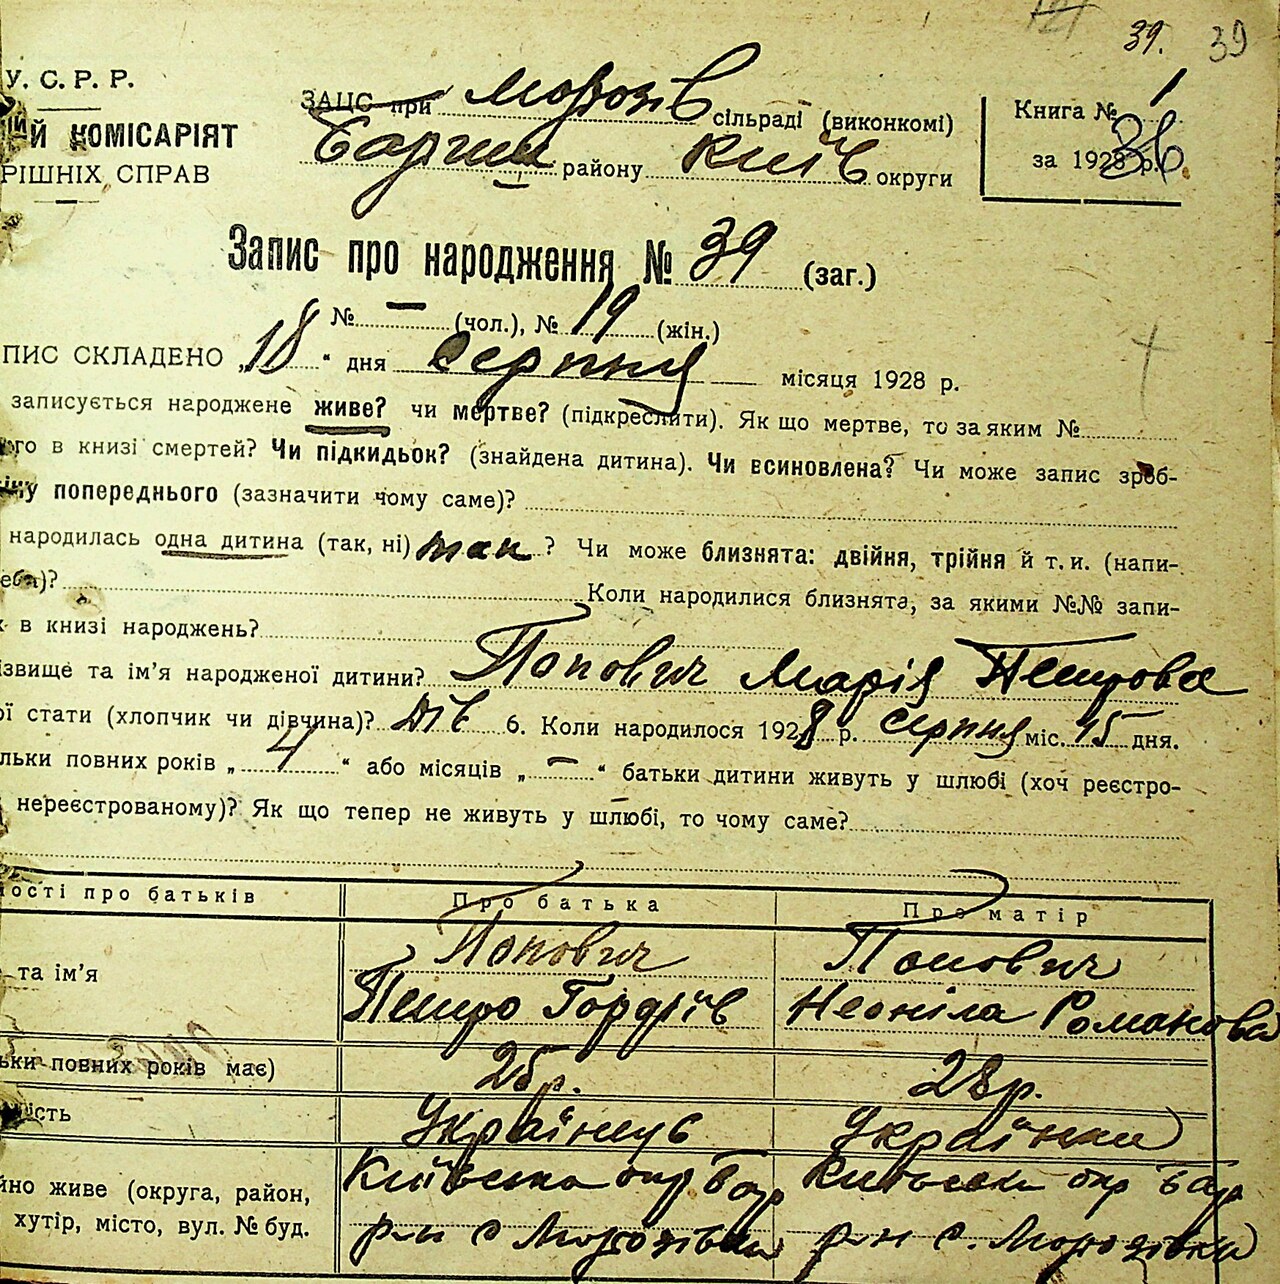 39. 39
У. С. Р. Р.
ИЙ КОМІСАРІЯТ
РІШНІХ СПРАВ
ЗАЦС при Морозів сільраді (виконкомі)
району Київ округи
Книга № 1
за 1928 р.
Запис про народження № 39 (заг.)
№ — (чол.), № 19 (жін.)
ПИС СКЛАДЕНО „18“ дня Серпня місяця 1928 р.
записується народжене живе? чи мертве? (підкреслити). Як що мертве, то за яким №
го в книзі смертей? Чи підкидьок? (знайдена дитина). Чи всиновлена? Чи може запис зроб-
ну попереднього (зазначити чому саме)?
народилась одна дитина (так, ні) так ? Чи може близнята: двійня, трійня й т. и. (напи-
)? Коли народилися близнята, за якими №№ запи-
в книзі народжень?
ізвище та ім’я народженої дитини? Попович Марія Петрова
ої стати (хлопчик чи дівчина)? Дів 6. Коли народилося 1928 р. серпня міс. 15 дня.
льки повних років „ 4 “ або місяців „ — “ батьки дитини живуть у шлюбі (хоч реєстро-
нереєстрованому)? Як що тепер не живуть у шлюбі, то чому саме? —
ості про батьків Про батька Про матір
та ім’я Попович Попович
Петро Гордіїв Неоніла Романова
ьки повних років має) 25 р. 28 р.
ість Українець Українка
йно живе (округа, район, Київська окр Бар Київська окр Бар
хутір, місто, вул. № буд. р-н с Морозівка р-н с. Морозівка